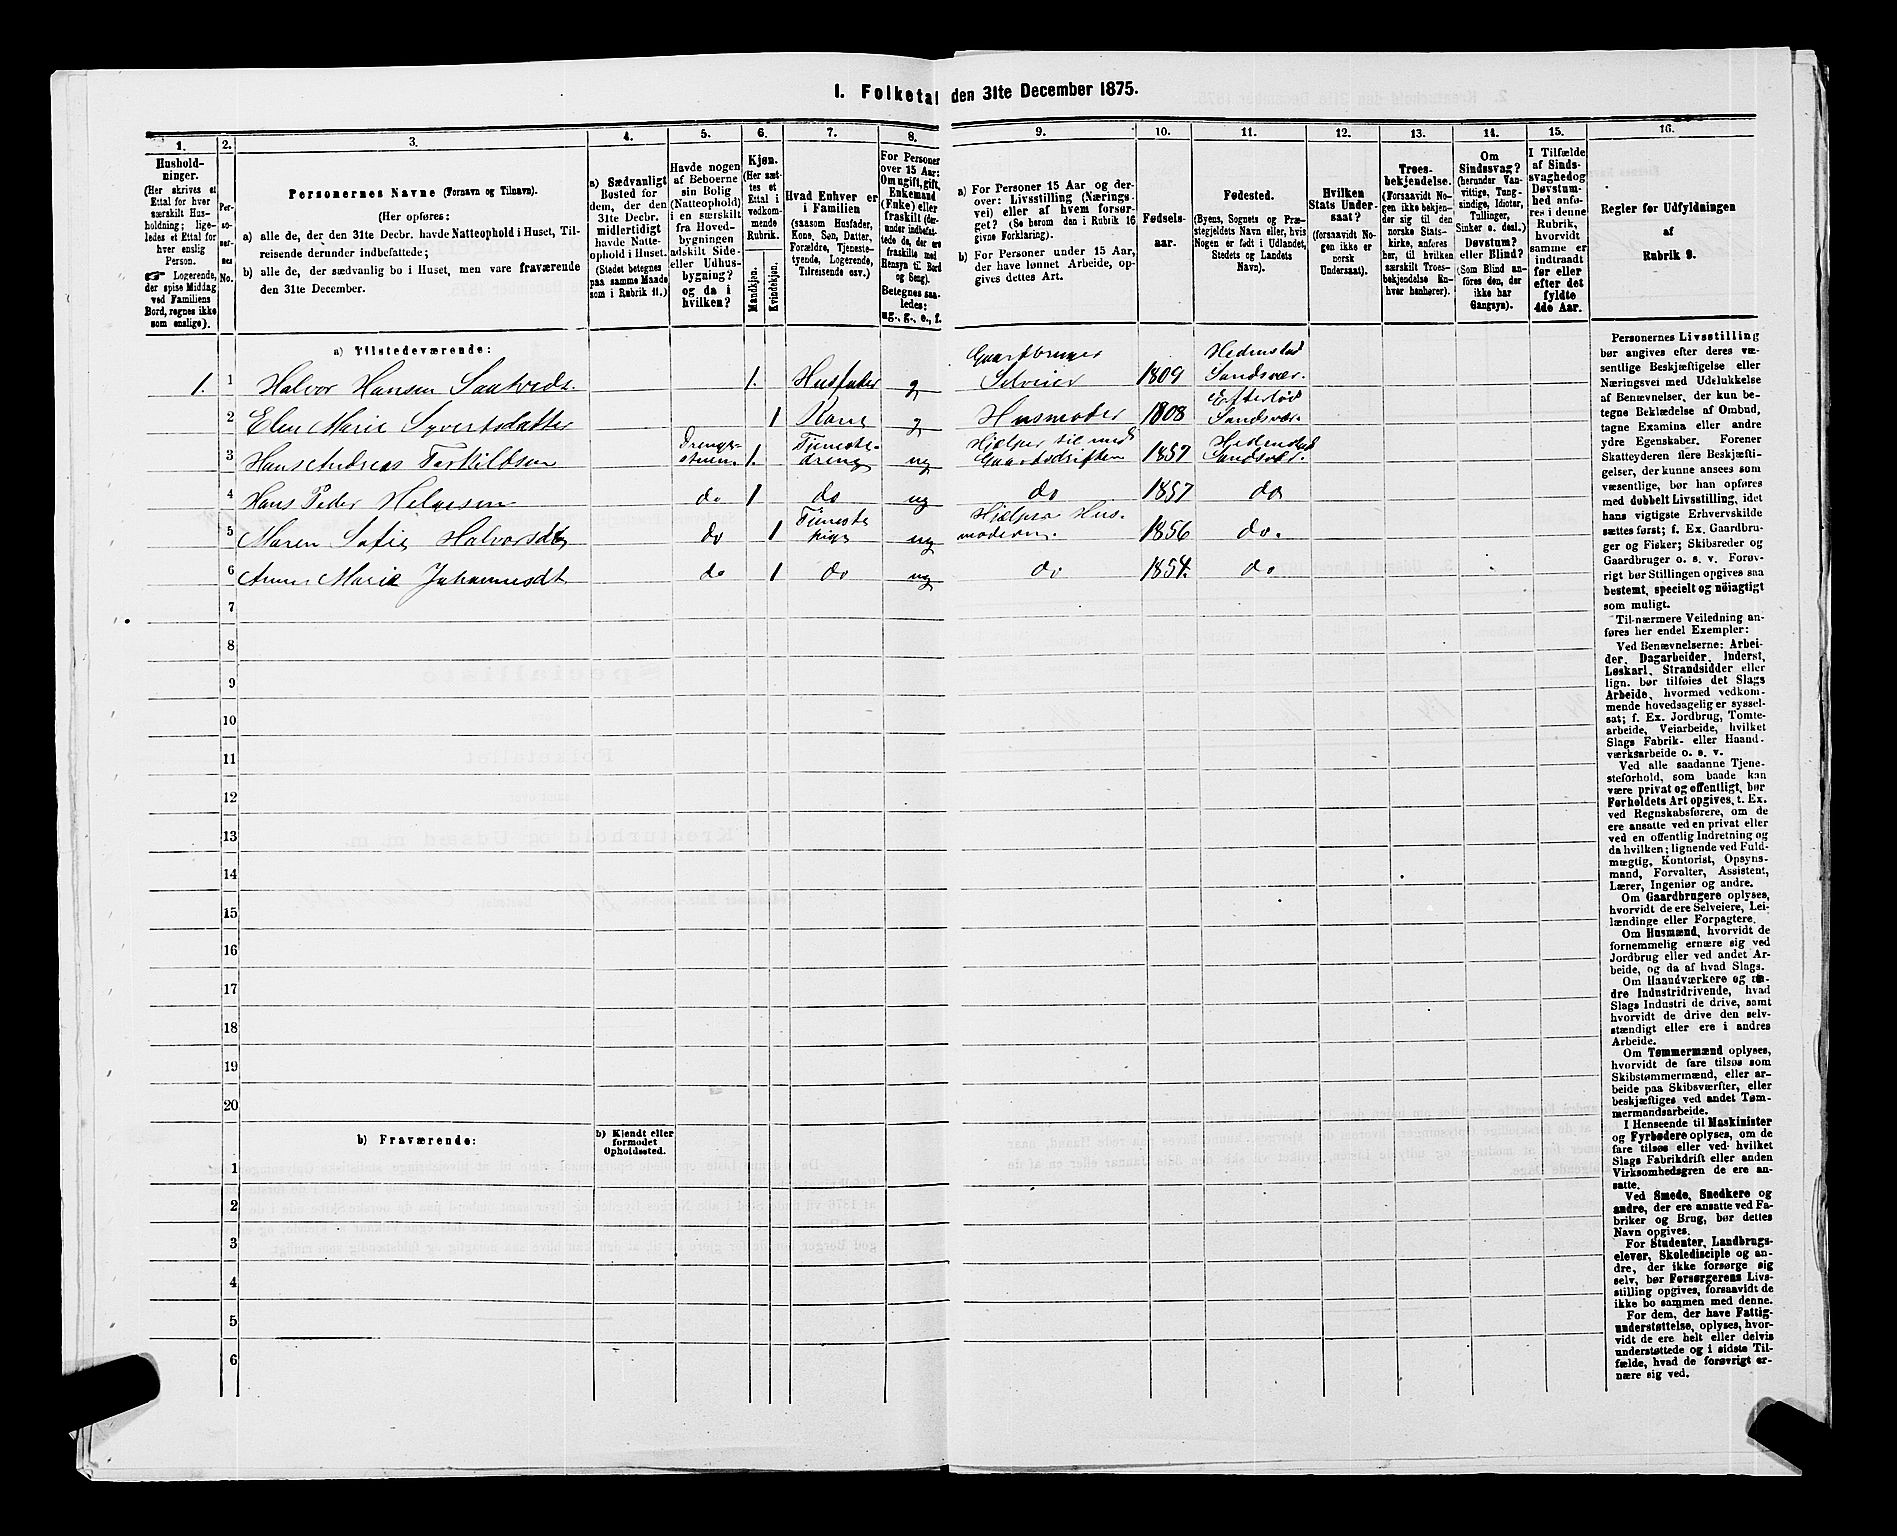 1. Folketal den 31te December 1875.
1.
Hushold-
ninger.
(Her skrives et
Ettal for hver
særskilt Hus-
holdning; lige-
ledes et Ettal for
hver enslig
Person.
☞ Logerende,
der spise Middag
ved Familiens
Bord, regnes ikke
som enslige).
2.
Per-
so-
ner-
nes
No.
3.
Personernes Navne (Fornavn og Tilnavn).
(Her opføres:
a) alle de, der den 31te Decbr. havde Natteophold i Huset, Til-
reisende derunder indbefattede;
b) alle de, der sædvanlig bo i Huset, men vare fraværende
den 31te December.
4.
a) Sædvanligt
Bosted for
dem, der den
31te Decbr.
midlertidigt
havde Natte-
ophold i Huset.
(Stedet betegnes
paa samme Maade
som i Rubrik 11.)
5.
Havde nogen
af Beboerne
sin Bolig
(Natteophold)
i en særskilt
fra Hoved-
bygningen
adskilt Side-
eller Udhus-
bygning?
og da i
hvilken?
6.
Kjøn.
(Her sæt-
tes et
Ettal i
vedkom-
mende
Rubrik.
Mandkjøn.
Kvindekjøn.
7.
Hvad Enhver er
i Familien
(saasom Husfader,
Kone, Søn, Datter,
Forældre, Tjeneste-
tyende, Logerende,
Tilreisende osv.)
8.
For Personer
over 15 Aar:
Om ugift, gift,
Enkemand
(Enke) eller
fraskilt (der-
under indbefat-
tede de, der ere
fraskilte med
Hensyn til Bord
og Seng).
Betegnes saa-
ledes:
ug., g., e., f.
9.
a) For Personer 15 Aar og der-
over: Livsstilling (Nærings-
vei) eller af hvem forsør-
get? (Se herom den i Rubrik 16
givne Forklaring).
b) For Personer under 15 Aar,
der have lønnet Arbeide, op-
gives dettes Art.
10.
Fødsels-
aar.
11.
Fødested.
(Byens, Sognets og Præ-
stegjeldets Navn eller, hvis
Nogen er født i Udlandet,
Stedets og Landets
Navn).
12.
Hvilken
Stats Under-
saat?
(forsaavidt No-
gen ikke er
norsk
Undersaat).
13.
Troes-
bekjendelse.
(Forsaavidt No-
gen ikke bekjen-
der sig til den
norske Stats-
kirke, anføres
her, til hvilken
særskilt Troes-
bekjendelse En-
hver henhører).
14.
Om
Sindssvag?
(herunder Van-
vittige, Tung-
sindige, Idioter,
Tullinger,
Sinker o. desl.)
Døvstum?
eller Blind?
(Som Blind an-
føres den, der
ikke har
Gangsyn).
15.
I Tilfælde
af Sinds-
svaghed og
Døvstum-
hed anfø-
res i denne
Rubrik,
hvorvidt
samme er
indtraadt
før eller
efter det
fyldte
4de Aar.
16.
Regler for Udfyldningen
af
Rubrik 9.
a) Tilstedeværende:
1. 1 Halvor Hansen 1. Husfader g Gaardbruger Selveier 1809 Hedenstad Sandsvær.
2 Elen Marie Syvertsdatter 1 Kone g Husmoder 1808 Eftelød Sandsvær.
3 Hans Andreas Torkildsen Drenge-stuen. 1. Tjeneste-dreng ug Hjælper til med Gaardsdriften 1857 Hedenstad Sandsvær.
4 Hans Peder Helgesen do 1 do ug do 1857 do
5 Maren Sofie Halvorsdt do 1 Tjeneste pige ug Hjælper Hus-moderen. 1856 do.
6 Anne Marie Johannesdt do 1 do ug do 1854. do
7
8
9
10
11
12
13
14
15
16
17
18
19
20
b) Fraværende:
b) Kjendt eller
formodet
Opholdssted.
1
2
3
4
5
6
Personernes Livsstilling
bør angives efter deres væ-
sentlige Beskjæftigelse eller
Næringsvei med Udelukkelse
af Benævnelser, der kun be-
tegne Beklædelse af Ombud,
tagne Examina eller andre
ydre Egenskaber. Forener
Skatteyderen flere Beskjæfti-
gelser, der kunne ansees som
væsentlige, bør han opføres
med dobbelt Livsstilling, idet
hans vigtigste Erhvervskilde
sættes først; f. Ex. Gaardbru-
ger og Fisker; Skibsreder og
Gaardbruger o. s. v. Forøv-
rigt bør Stillingen opgives saa
bestemt, specielt og nöiagtigt
som muligt.
Til nærmere Veiledning an-
føres her endel Exempler:
Ved Benævnelserne: Arbei-
der, Dagarbeider, Inderst,
Løskarl, Strandsidder eller
lign. bør tilføies det Slags
Arbeide, hvormed vedkom-
mende hovedsagelig er syssel-
sat; f. Ex. Jordbrug, Tomte-
arbeide, Veiarbeide, hvilket
Slags Fabrik- eller Haand-
værksarbeide o. s. v.
Ved alle saadanne Tjene-
steforhold, som baade kan
være privat og offentligt, bør
Forholdets Art opgives, t. Ex.
ved Regnskabsførere, om de
ere ansatte ved en privat eller
ved en offentlig Indretning og
da hvilken; lignende ved Fuld-
mægtig, Kontorist, Opsyns-
mand, Forvalter, Assistent,
Lærer, Ingeniør og andre.
Om Gaardbrugere oplyses,
hvorvidt de ere Selveiere, Lei-
lændinge eller Forpagtere.
Om Husmænd, hvorvidt de
fornemmelig ernære sig ved
Jordbrug eller ved andet Ar-
beide, og da af hvad Slags.
Om Haandværkere og an-
dre Industridrivende, hvad
Slags Industri de drive, samt
hvorvidt de drive den selv-
stændigt eller ere i andres
Arbeide.
Om Tømmermænd oplyses,
hvorvidt de fare tilsøs som
Skibstømmermænd, eller ar-
beide paa Skibsværfter, eller
beskjæftiges ved andet Tøm-
mermandsarbeide.
I Henseende til Maskinister
og Fyrbødere oplyses, om de
fare tilsøs eller ved hvilket
Slags Fabrikdrift eller anden
Virksomhedsgren de ere an-
satte.
Ved Smede, Snedkere og
andre, der ere ansatte ved Fa-
briker og Brug, bør dettes
Navn opgives.
For Studenter, Landbrugs-
elever, Skoledisciple og an-
dre, der ikke forsørge sig
selv, bør Forsørgerens Livs-
stilling opgives, forsaavidt de
ikke bo sammen med denne.
For dem, der have Fattig-
understøttelse, oplyses, hvor-
vidt de ere helt eller delvis
understøttede og i sidste Til-
fælde, hvad de forøvrigt er-
nære sig ved.